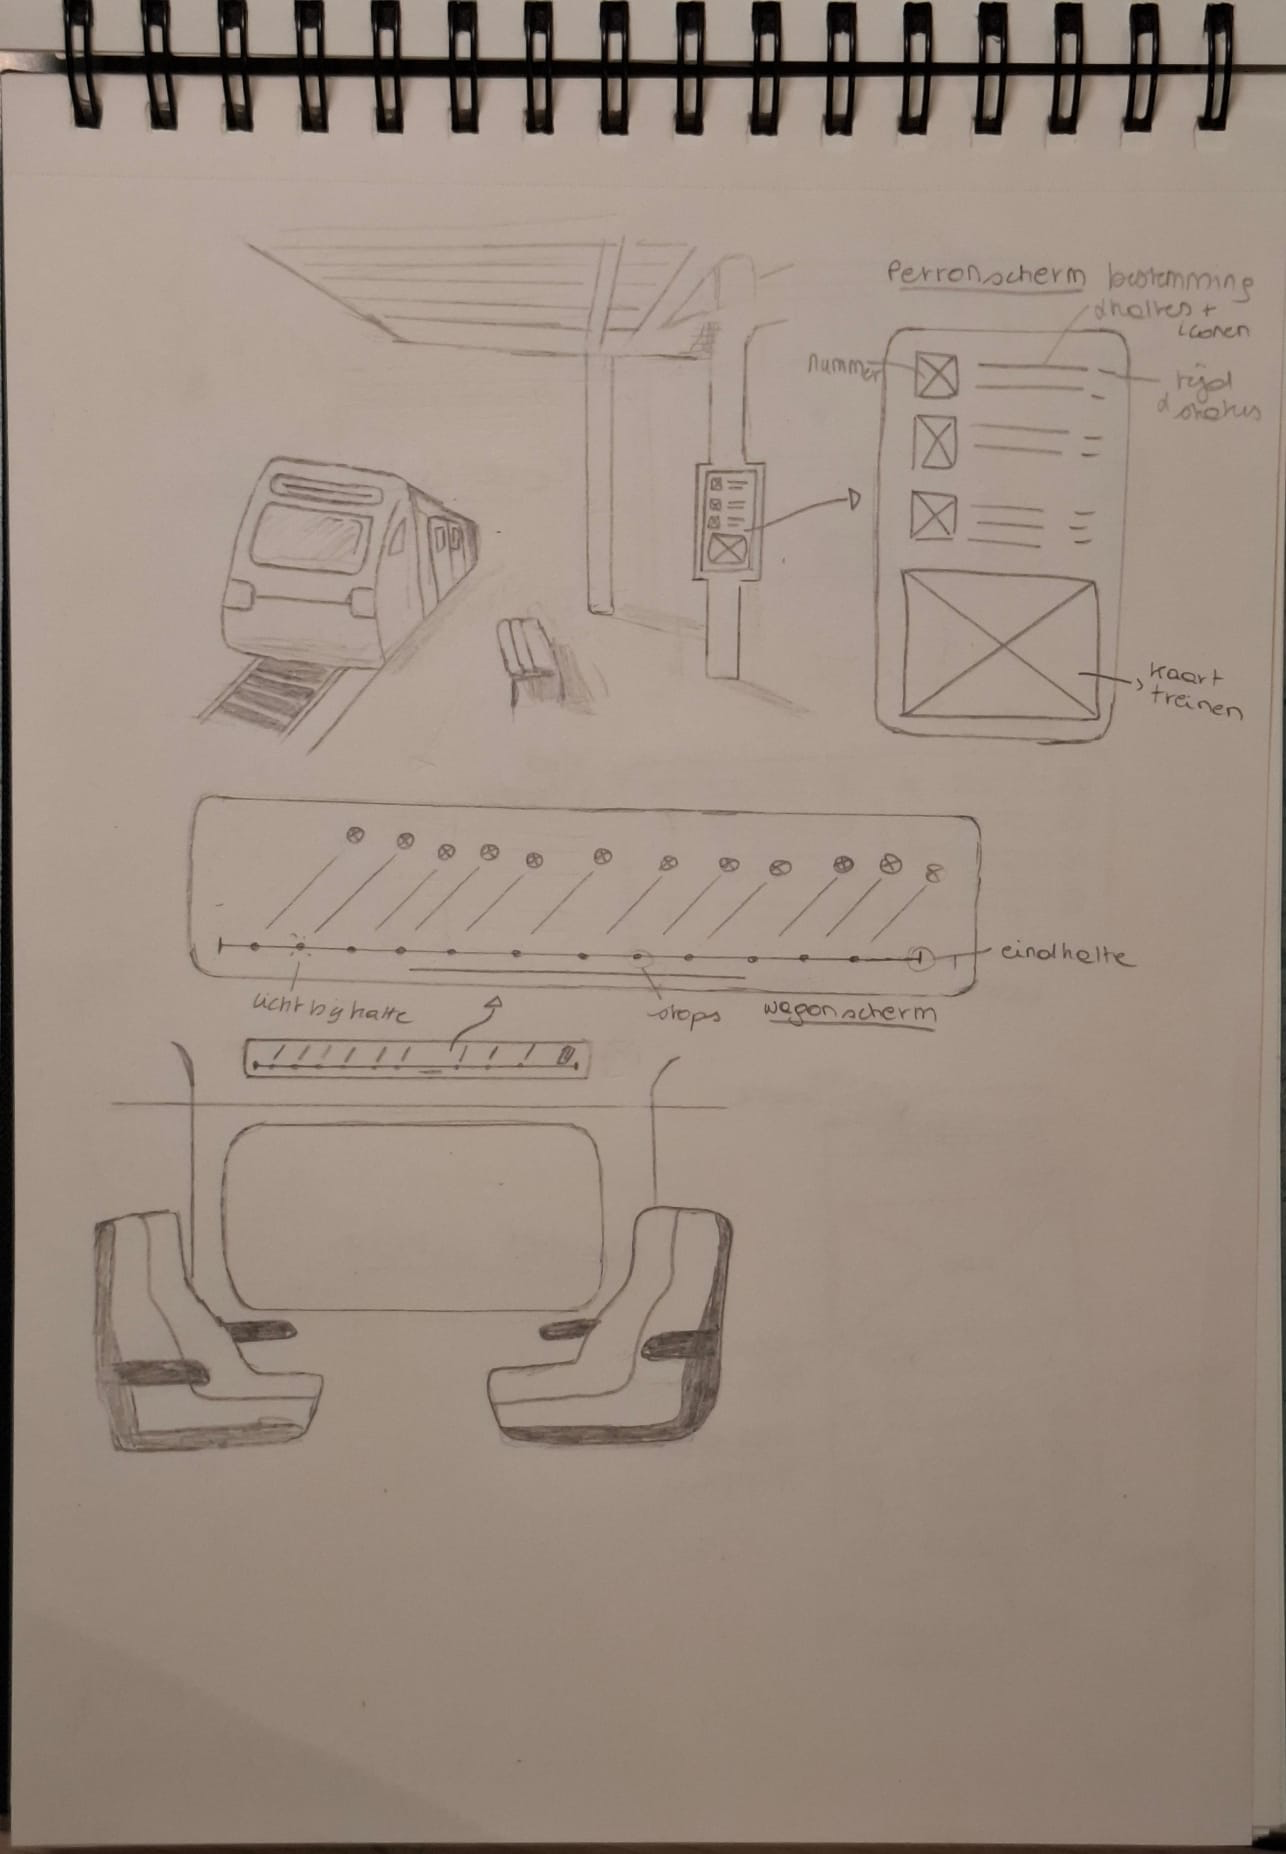 Perronscherm bestemming
& haltes +
iconen
nummer
tijd
& status
kaart
treinen
eindhalte
licht bij halte
stops
wagonscherm